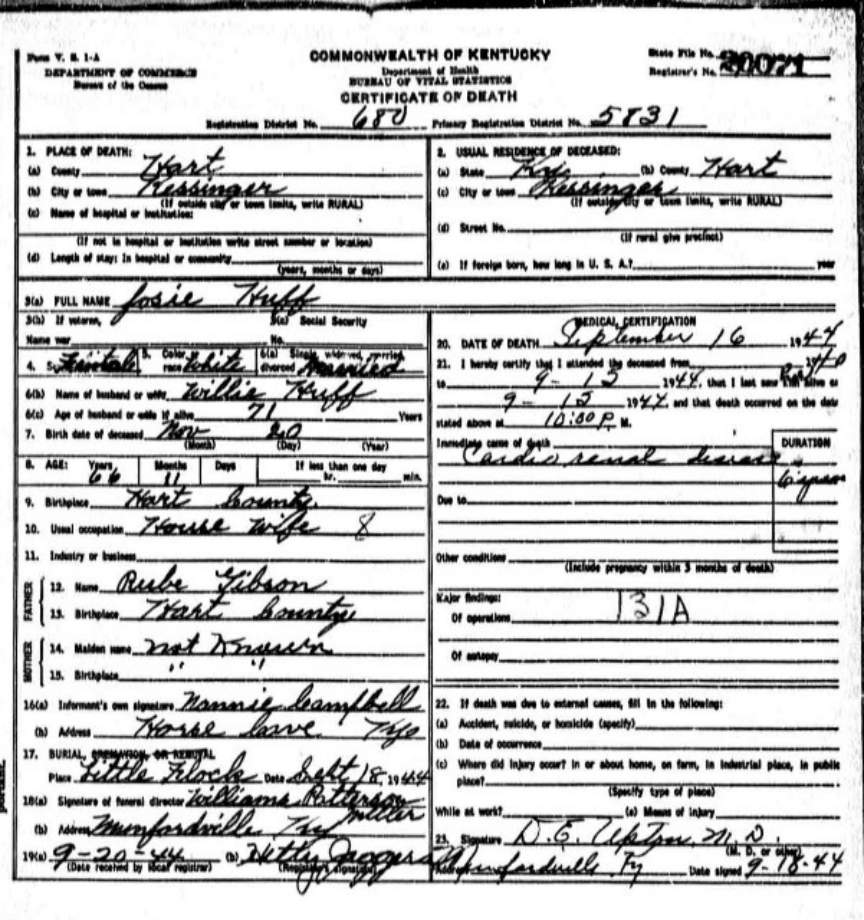 Form V. S. 1-A
DEPARTMENT OF COMMERCE
Bureau of the Census
COMMONWEALTH OF KENTUCKY
Department of Health
BUREAU OF VITAL STATISTICS
CERTIFICATE OF DEATH
State File No.
Registrar's No. 20071
Registration District No. 680 Primary Registration District No. 5831
1. PLACE OF DEATH:
(a) County Hart
(b) City or town Kessinger
(If outside city or town limits, write RURAL)
(c) Name of hospital or institution:
(If not in hospital or institution write street number or location)
(d) Length of stay: In hospital or community
(years, months or days)
2. USUAL RESIDENCE OF DECEASED:
(a) State Ky. (b) County Hart
(c) City or town Kessinger
(If outside city or town limits, write RURAL)
(d) Street No.
(If rural give precinct)
(e) If foreign born, how long in U. S. A.? year
3(a) FULL NAME Josie Huff
3(b) If veteran, 3(c) Social Security
Name war No.
4. Sex Female 5. Color or race White 6(a) Single, widowed, married, divorced Married
6(b) Name of husband or wife Willie Huff
6(c) Age of husband or wife if alive 71 Years
7. Birth date of deceased Nov 20
(Month) (Day) (Year)
8. AGE: Years Months Days If less than one day
66 11 hr. min.
9. Birthplace Hart County
10. Usual occupation House Wife 8
11. Industry or business
FATHER
12. Name Rube Gibson
13. Birthplace Hart County
MOTHER
14. Maiden name not Known
15. Birthplace " "
16(a) Informant's own signature Nannie Campbell
(b) Address Horse Cave Ky
17. BURIAL, CREMATION, OR REMOVAL
Place Little Flock Date Sept 18, 1944
18(a) Signature of funeral director Williams Patterson
Miller
(b) Address Munfordville Ky
19(a) 9-20-44 (b) Hetty Jaggers
(Date received by local registrar) (Registrar's signature)
MEDICAL CERTIFICATION
20. DATE OF DEATH September 16 1944
21. I hereby certify that I attended the deceased from 1940
to 9-15 1944, that I last saw her alive on
9-15 1944, and that death occurred on the date
stated above at 10:00 P. M.
Immediate cause of death DURATION
Cardio renal disease
6 years
Due to
Other conditions
(Include pregnancy within 3 months of death)
Major findings:
Of operations 131A
Of autopsy
22. If death was due to external causes, fill in the following:
(a) Accident, suicide, or homicide (specify)
(b) Date of occurrence
(c) Where did injury occur? In or about home, on farm, in industrial place, in public
place?
(Specify type of place)
While at work? (e) Means of injury
23. Signature D. E. Upton, M. D.
(M. D. or other)
Address Munfordville Ky Date signed 9-18-44